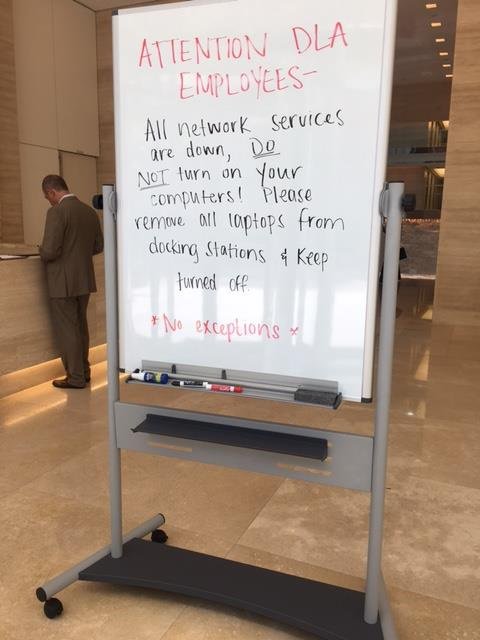 ATTENTION DLA
EMPLOYEES-
All network services
are down, DO
NOT turn on your
computers! Please
remove all laptops from
docking stations & keep
turned off.
*No exceptions*